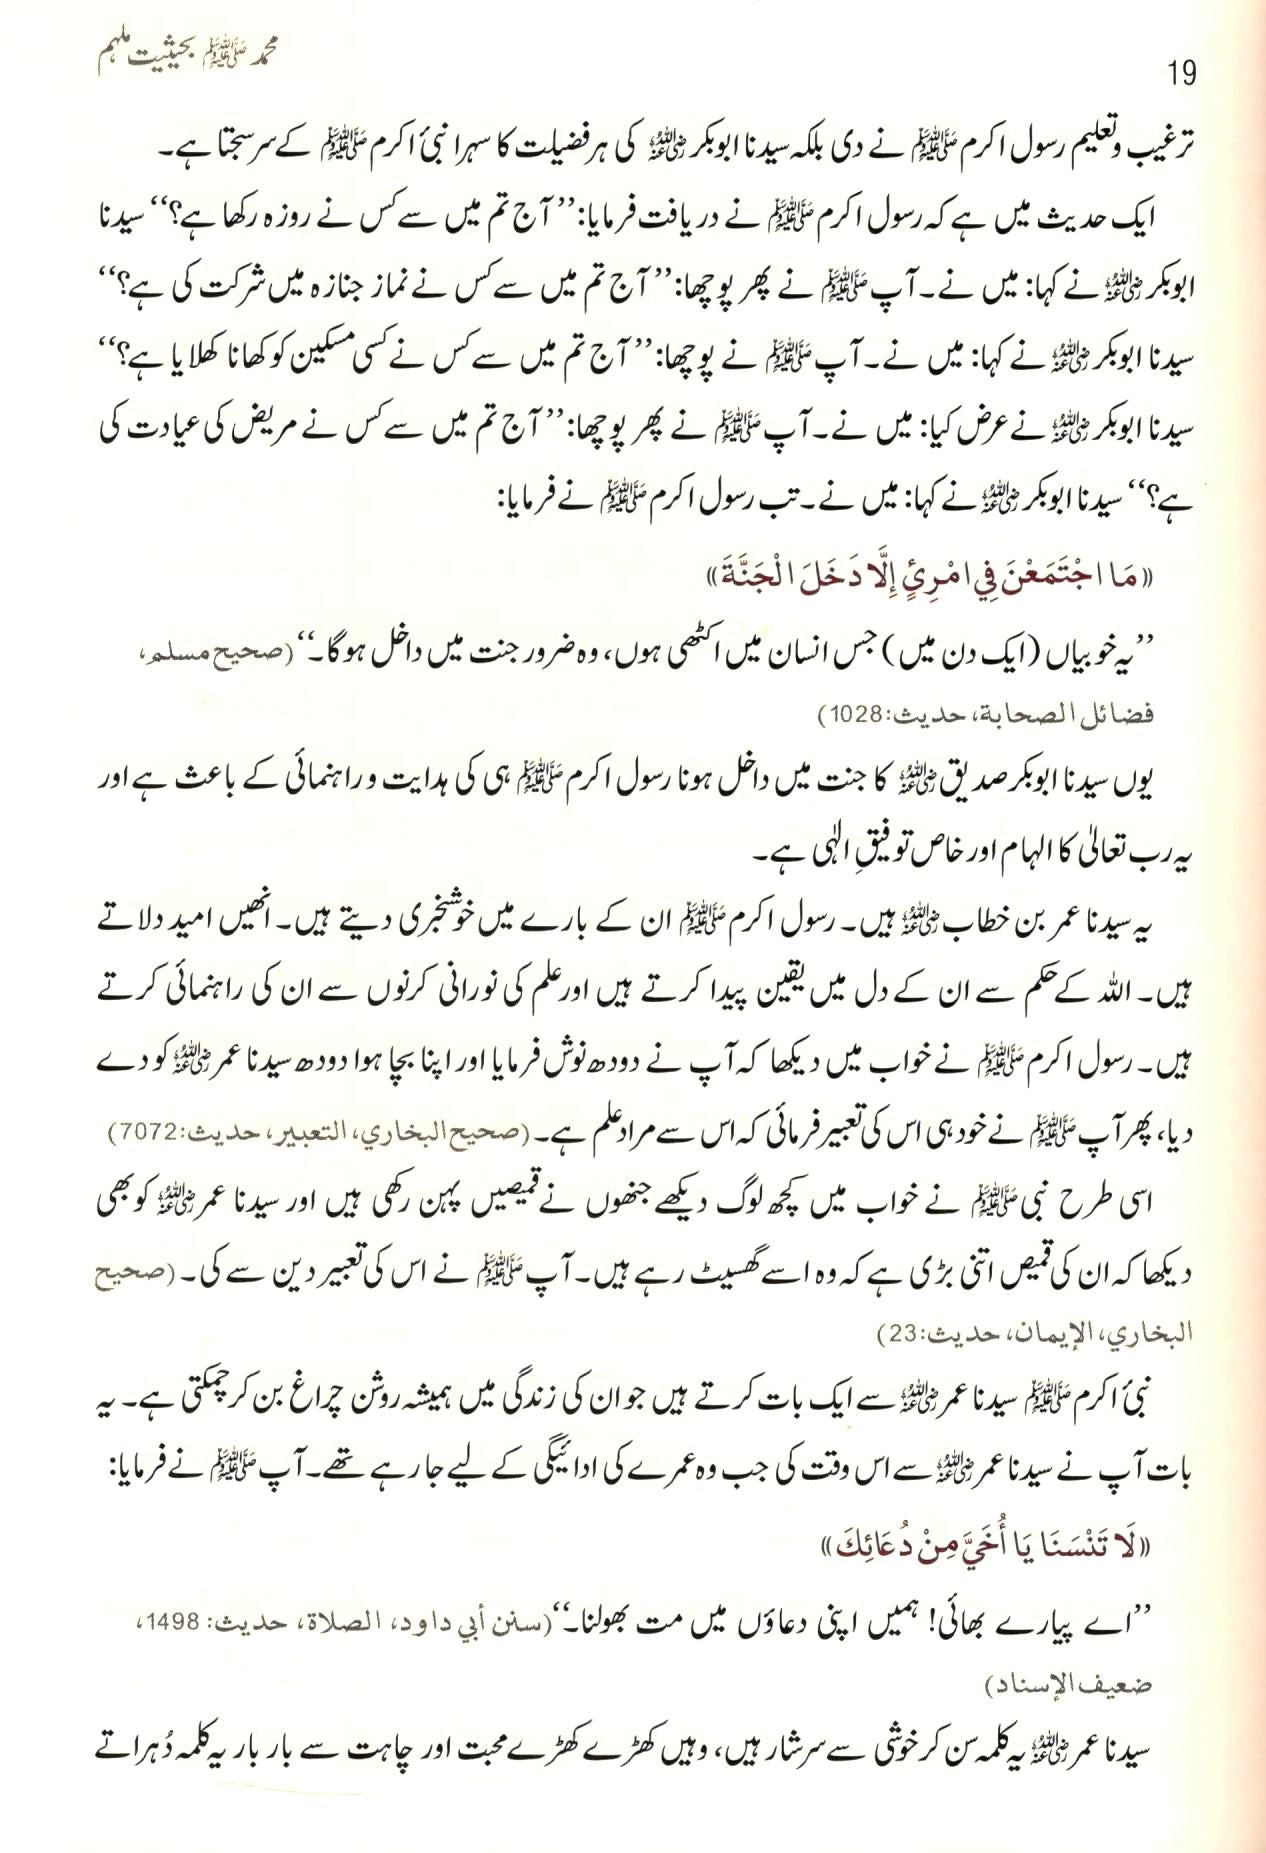 محمد ﷺ بحیثیت ملہم
19
ترغیب و تعلیم رسول اکرم ﷺ نے دی بلکہ سیدنا ابوبکر رضی اللہ عنہ کی ہر فضیلت کا سہرا نبیٔ اکرم ﷺ کے سر سجتا ہے۔
ایک حدیث میں ہے کہ رسول اکرم ﷺ نے دریافت فرمایا: ’’آج تم میں سے کس نے روزہ رکھا ہے؟‘‘ سیدنا
ابوبکر رضی اللہ عنہ نے کہا: میں نے۔ آپ ﷺ نے پھر پوچھا: ’’آج تم میں سے کس نے نماز جنازہ میں شرکت کی ہے؟‘‘
سیدنا ابوبکر رضی اللہ عنہ نے کہا: میں نے۔ آپ ﷺ نے پوچھا: ’’آج تم میں سے کس نے کسی مسکین کو کھانا کھلایا ہے؟‘‘
سیدنا ابوبکر رضی اللہ عنہ نے عرض کیا: میں نے۔ آپ ﷺ نے پھر پوچھا: ’’آج تم میں سے کس نے مریض کی عیادت کی
ہے؟‘‘ سیدنا ابوبکر رضی اللہ عنہ نے کہا: میں نے۔ تب رسول اکرم ﷺ نے فرمایا:
«مَا اجْتَمَعْنَ فِي امْرِئٍ إِلَّا دَخَلَ الْجَنَّةَ»
’’یہ خوبیاں (ایک دن میں) جس انسان میں اکٹھی ہوں، وہ ضرور جنت میں داخل ہوگا۔‘‘ (صحیح مسلم،
فضائل الصحابة، حدیث: 1028)
یوں سیدنا ابوبکر صدیق رضی اللہ عنہ کا جنت میں داخل ہونا رسول اکرم ﷺ ہی کی ہدایت و راہنمائی کے باعث ہے اور
یہ رب تعالیٰ کا الہام اور خاص توفیقِ الٰہی ہے۔
یہ سیدنا عمر بن خطاب رضی اللہ عنہ ہیں۔ رسول اکرم ﷺ ان کے بارے میں خوشخبری دیتے ہیں۔ انھیں امید دلاتے
ہیں۔ اللہ کے حکم سے ان کے دل میں یقین پیدا کرتے ہیں اور علم کی نورانی کرنوں سے ان کی راہنمائی کرتے
ہیں۔ رسول اکرم ﷺ نے خواب میں دیکھا کہ آپ نے دودھ نوش فرمایا اور اپنا بچا ہوا دودھ سیدنا عمر رضی اللہ عنہ کو دے
دیا، پھر آپ ﷺ نے خود ہی اس کی تعبیر فرمائی کہ اس سے مراد علم ہے۔ (صحیح البخاري، التعبیر، حدیث: 7072)
اسی طرح نبی ﷺ نے خواب میں کچھ لوگ دیکھے جنھوں نے قمیصیں پہن رکھی ہیں اور سیدنا عمر رضی اللہ عنہ کو بھی
دیکھا کہ ان کی قمیص اتنی بڑی ہے کہ وہ اسے گھسیٹ رہے ہیں۔ آپ ﷺ نے اس کی تعبیر دین سے کی۔ (صحیح
البخاري، الإیمان، حدیث: 23)
نبیٔ اکرم ﷺ سیدنا عمر رضی اللہ عنہ سے ایک بات کرتے ہیں جو ان کی زندگی میں ہمیشہ روشن چراغ بن کر چمکتی ہے۔ یہ
بات آپ نے سیدنا عمر رضی اللہ عنہ سے اس وقت کی جب وہ عمرے کی ادائیگی کے لیے جا رہے تھے۔ آپ ﷺ نے فرمایا:
«لَا تَنْسَنَا يَا أُخَيَّ مِنْ دُعَائِكَ»
’’اے پیارے بھائی! ہمیں اپنی دعاؤں میں مت بھولنا۔‘‘ (سنن أبي داود، الصلاة، حدیث: 1498،
ضعیف الإسناد)
سیدنا عمر رضی اللہ عنہ یہ کلمہ سن کر خوشی سے سرشار ہیں، وہیں کھڑے کھڑے محبت اور چاہت سے بار بار یہ کلمہ دُہراتے